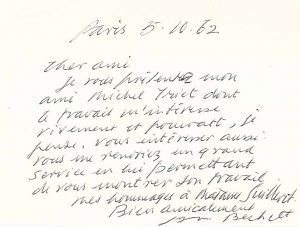 Paris 5.10.62
Cher ami
Je vous présente mon
ami Michel Triet dont
le travail m'intéresse
vivement et pourrait, je
pense, vous intéresser aussi.
Vous me rendriez un grand
service en lui permettant
de vous montrer son travail.
Mes hommages à Madame
Bien amicalement
Beckett